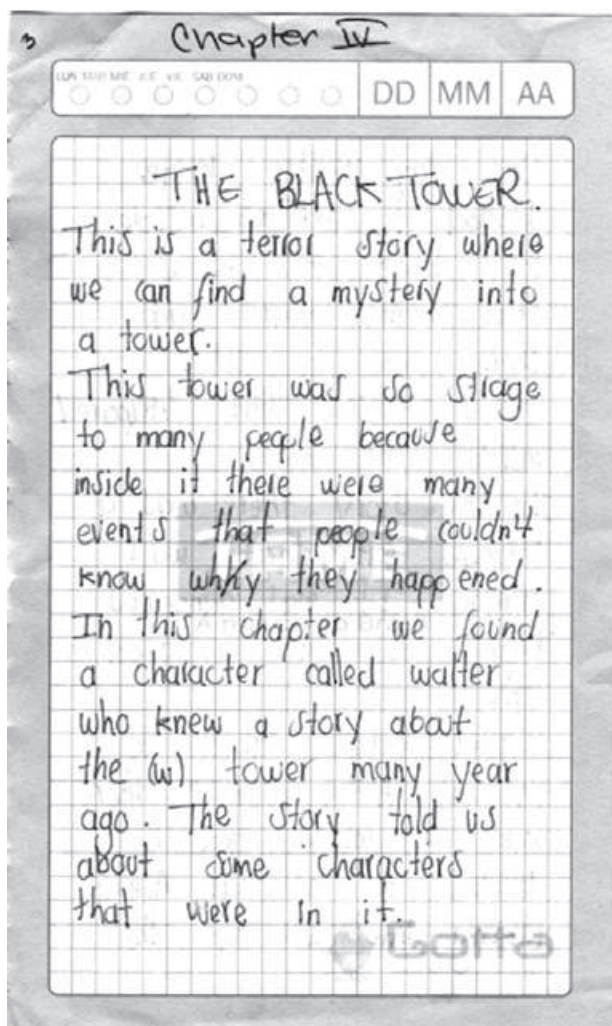 3 Chapter IV
LUN MAR MIE JUE VIE SAB DOM
DD MM AA
THE BLACK TOWER.
This is a terror story where
we can find a mystery into
a tower.
This tower was so strage
to many people because
inside it there were many
events that people couldn't
know whky they happened.
In this chapter we found
a character called walter
who knew a story about
the (w) tower many year
ago. The story told us
about some characters
that were in it.
Gotta